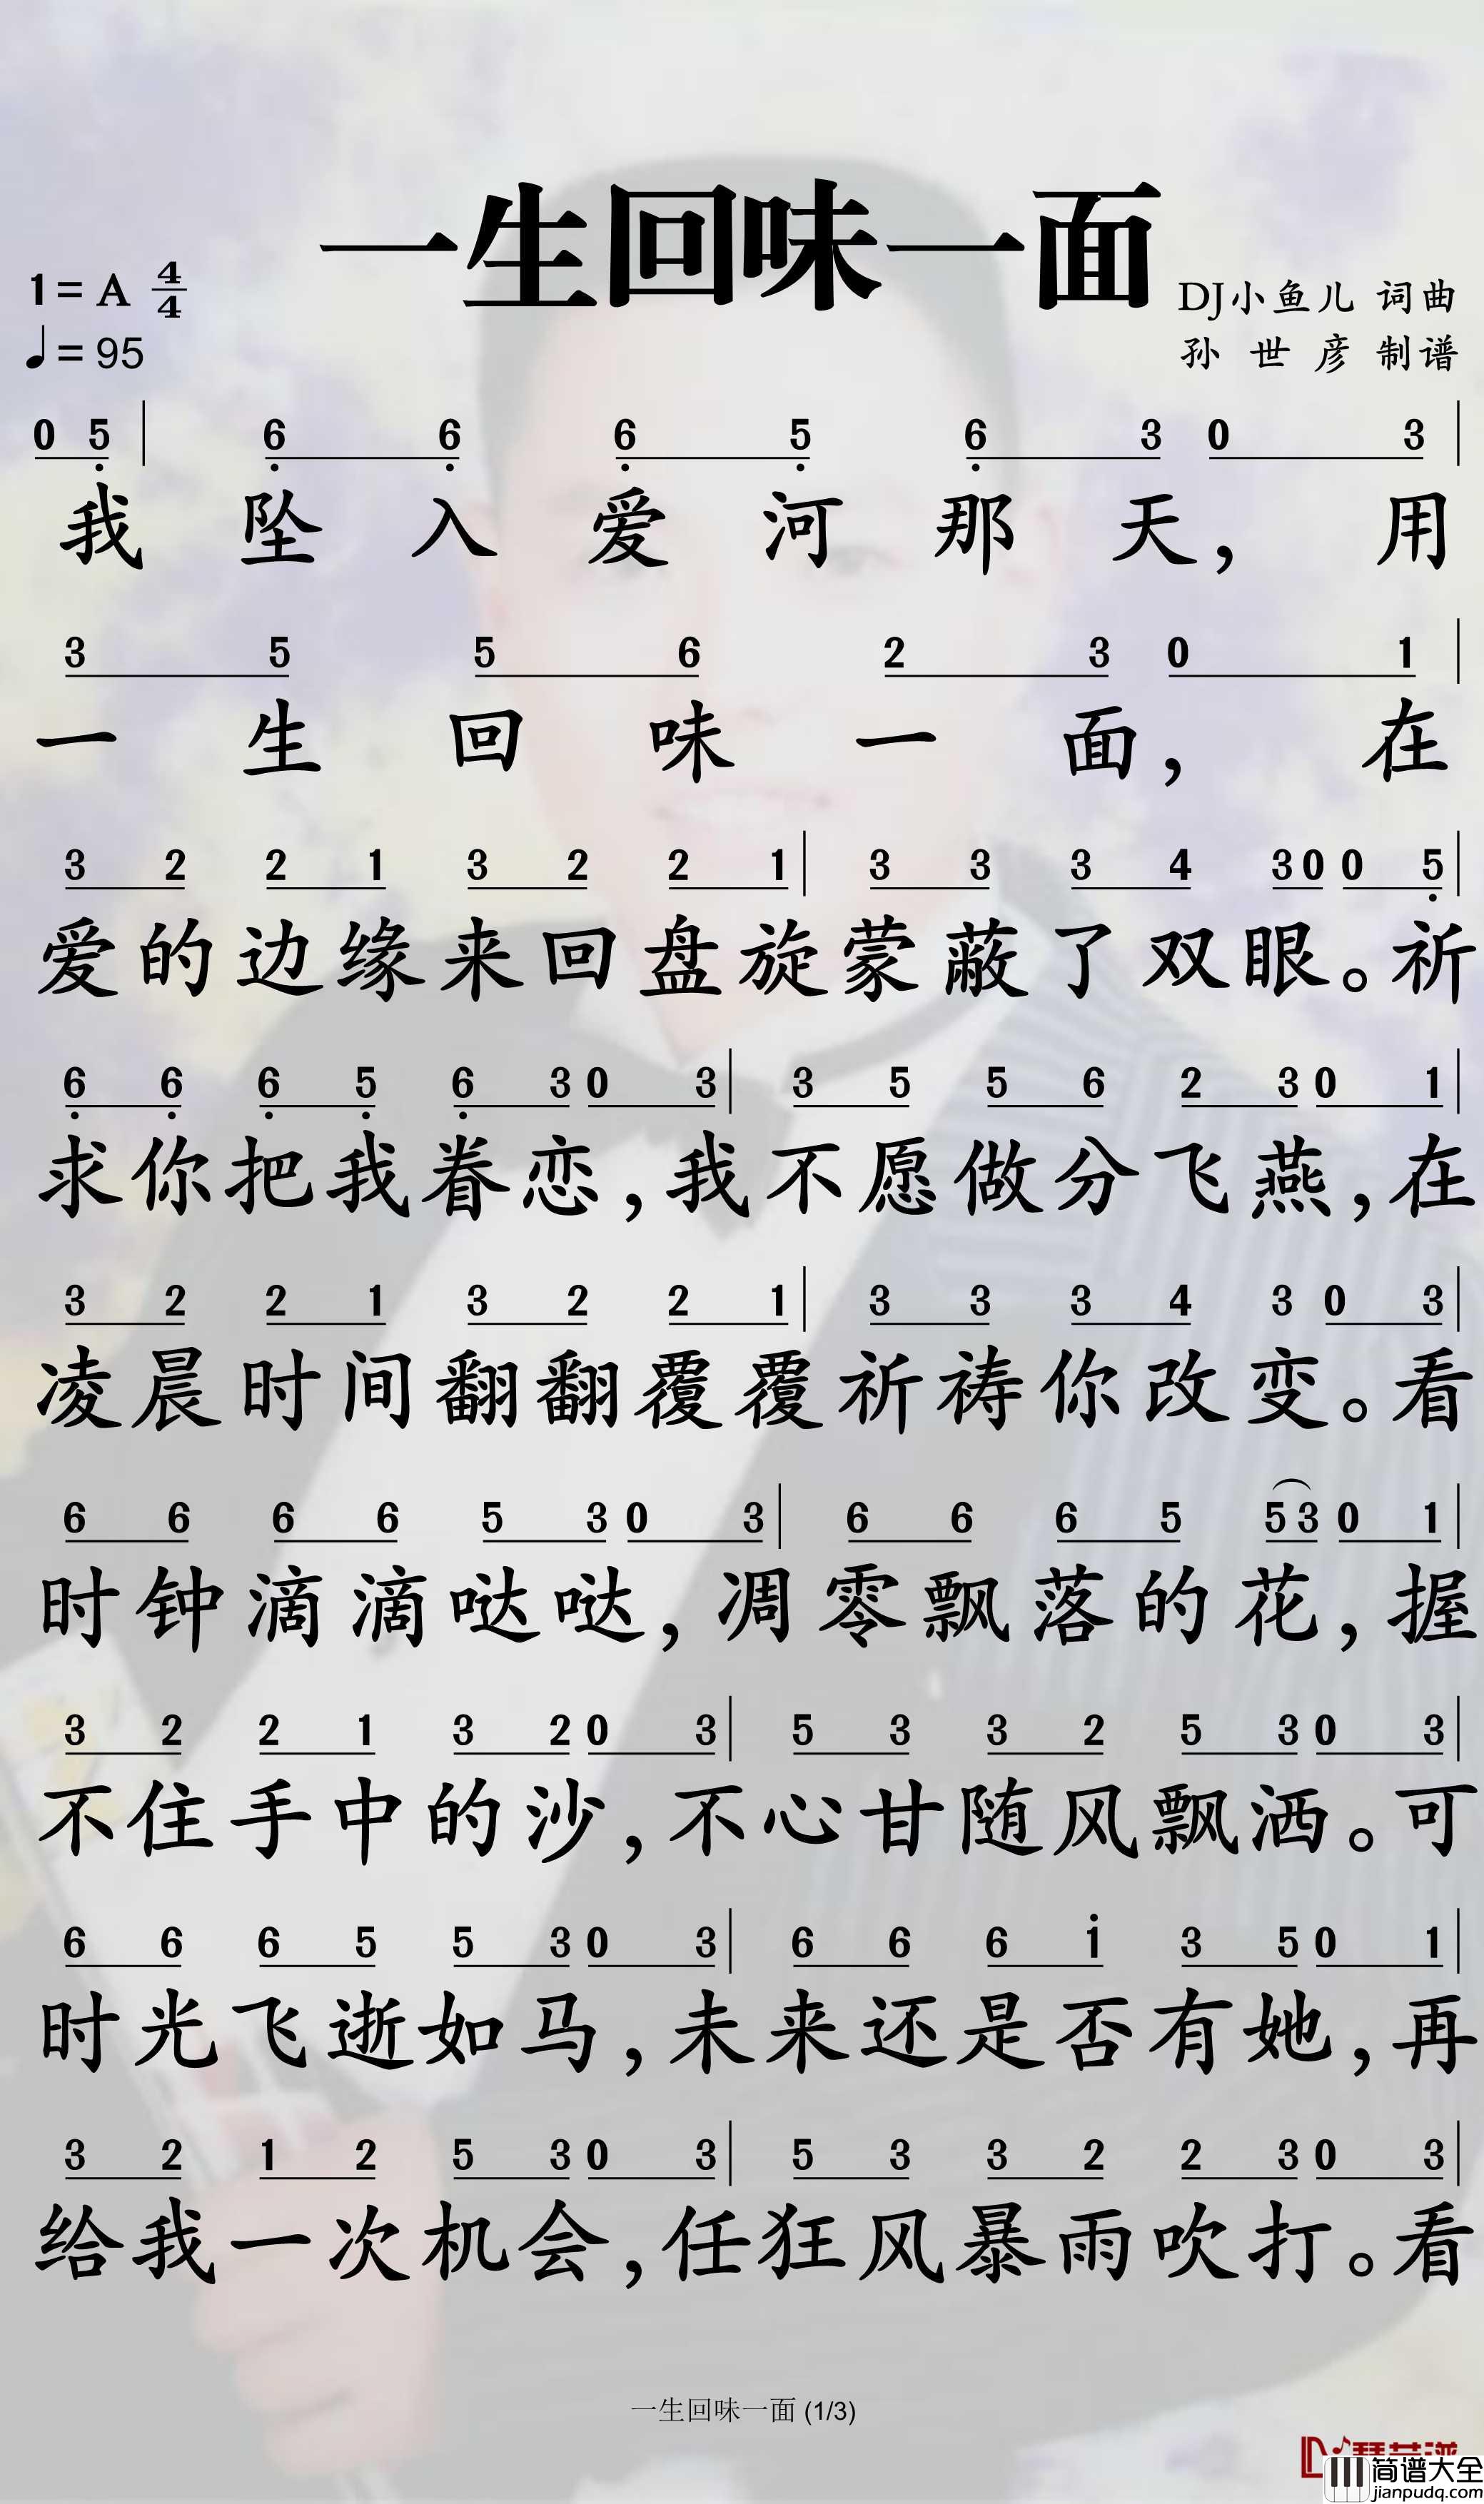 一生回味一面
1=A 4/4
♩=95
DJ小鱼儿 词曲
孙世彦 制谱
0 5̣ | 6̣ 6̣ 6̣ 5̣ 6̣ 3 0 3 |
我坠入爱河那天，用
3 5 5 6 2 3 0 1 |
一生回味一面，在
3 2 2 1 3 2 2 1 | 3 3 3 4 3 0 0 5̣ |
爱的边缘来回盘旋蒙蔽了双眼。祈
6̣ 6̣ 6̣ 5̣ 6̣ 3 0 3 | 3 5 5 6 2 3 0 1 |
求你把我眷恋，我不愿做分飞燕，在
3 2 2 1 3 2 2 1 | 3 3 3 4 3 0 3 |
凌晨时间翻翻覆覆祈祷你改变。看
6 6 6 6 5 3 0 3 | 6 6 6 5 5 3 0 1 |
时钟滴滴哒哒，凋零飘落的花，握
3 2 2 1 3 2 0 3 | 5 3 3 2 5 3 0 3 |
不住手中的沙，不心甘随风飘洒。可
6 6 6 5 5 3 0 3 | 6 6 6 i 3 5 0 1 |
时光飞逝如马，未来还是否有她，再
3 2 1 2 5 3 0 3 | 5 3 3 2 2 3 0 3 |
给我一次机会，任狂风暴雨吹打。看
一生回味一面 (1/3)
简谱大全
jianpudq.com